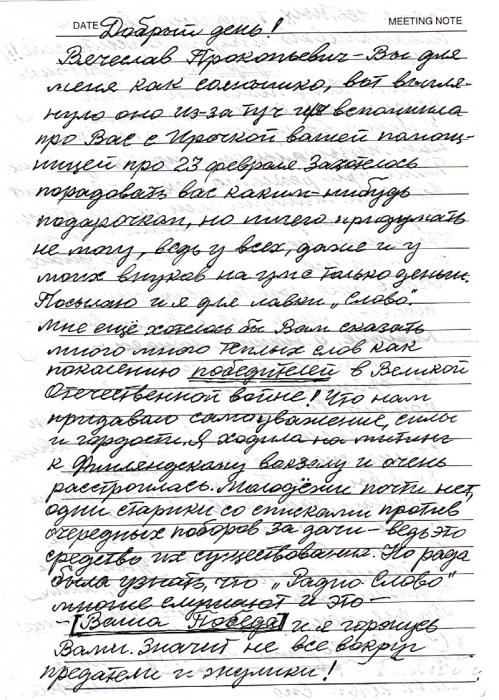 DATE Добрый день! MEETING NOTE
Вячеслав Прокопьевич – Вы для
меня как солнышко, вот выгля-
нуло оно из-за туч и я вспомнила
про Вас с Ирочкой вашей помощ-
ницей про 23 февраля. Захотелось
порадовать вас каким-нибудь
подарочком, но ничего придумать
не могу, ведь у всех, даже и у
моих внуков на уме только деньги.
Посылаю и я для лавки „Слово".
Мне ещё хотелось бы Вам сказать
много много тёплых слов как
поколению победителей в Великой
Отечественной войне! Что нам
придавало самоуважение, силы
и гордости. Я ходила на митинг
к Финляндскому вокзалу и очень
расстроилась. Молодёжи почти нет,
одни старики со списками против
очередных поборов за дачи – ведь это
средство их существования. Но рада
была узнать, что „Радио Слово"
многие слушают и это –
– [Ваша Победа] и я горжусь
Вами. Значит не все вокруг
предатели и жулики!